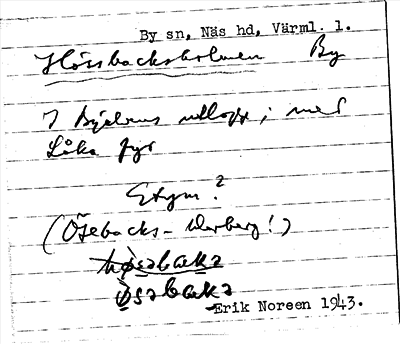 By sn, Näs hd, Värml. l.
Hössbacksholmen By
I Byälvens utlopp i med
Låka fyr
Etym.?
(Ösebacks- Werberg!)
høsəbakə
øsəbakə
Erik Noreen 1943.